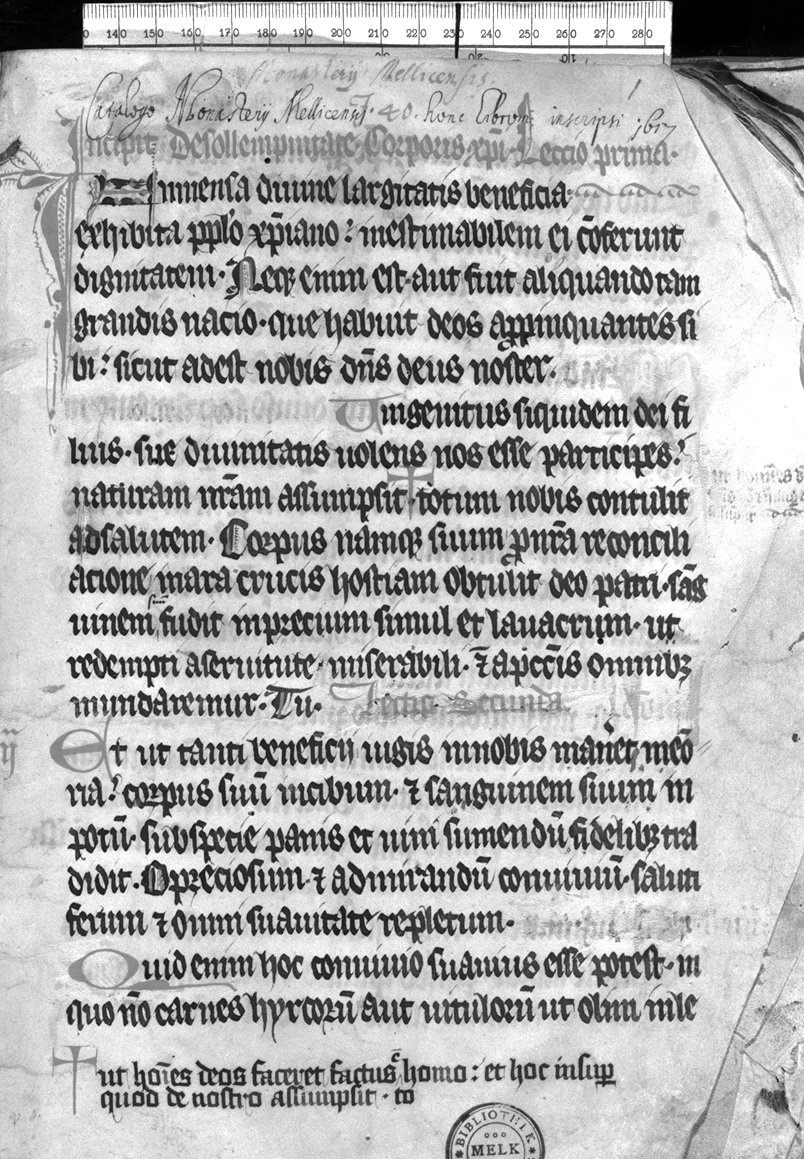 0 140 150 160 170 180 190 200 210 220 230 240 250 260 270 280
Monasterij Mellicensis.
Catalogo Monasterij Mellicensis 40. hunc librum inscripsi 1617
1
Incipit De sollempnitate Corporis xpi Leccio prima.
Inmensa diuine largitatis beneficia
exhibita pplo xpiano: inestimabilem ei cōferunt
dignitatem. Neq; enim est aut fuit aliquando tam
grandis nacio. que habuit deos appinquantes si
bi: sicut adest nobis dn̄s deus noster.
Unigenitus siquidem dei fi
lius. sue diuinitatis uolens nos esse participes:
naturam nr̄am assumpsit + totum nobis contulit
ad salutem. Corpus namq; suum p nr̄a reconcili
acione in ara crucis hostiam obtulit deo patri. sāg
uinem suū fudit in precium simul et lauacrum. ut
redempti a seruitute miserabili. ⁊ a pccīs omnibȝ
mundaremur. Tu. Lectio Secunda
Et ut tanti beneficij iugis in nobis maneret meō
ria: corpus suū in cibum. ⁊ sanguinem suum in
potū. sub specie panis et uini sumendū fidelibȝ tra
didit. O preciosum ⁊ admirandū conuiuiū. saluti
ferum ⁊ omni suauitate repletum.
Quid enim hoc conuiuio suauius esse potest. in
quo nō carnes hyrcorū aut uitulorū ut olim in le
+ ut hoīes deos faceret factus ē homo: et hoc insup
quod de nostro assumpsit. to
BIBLIOTHEK
MELK